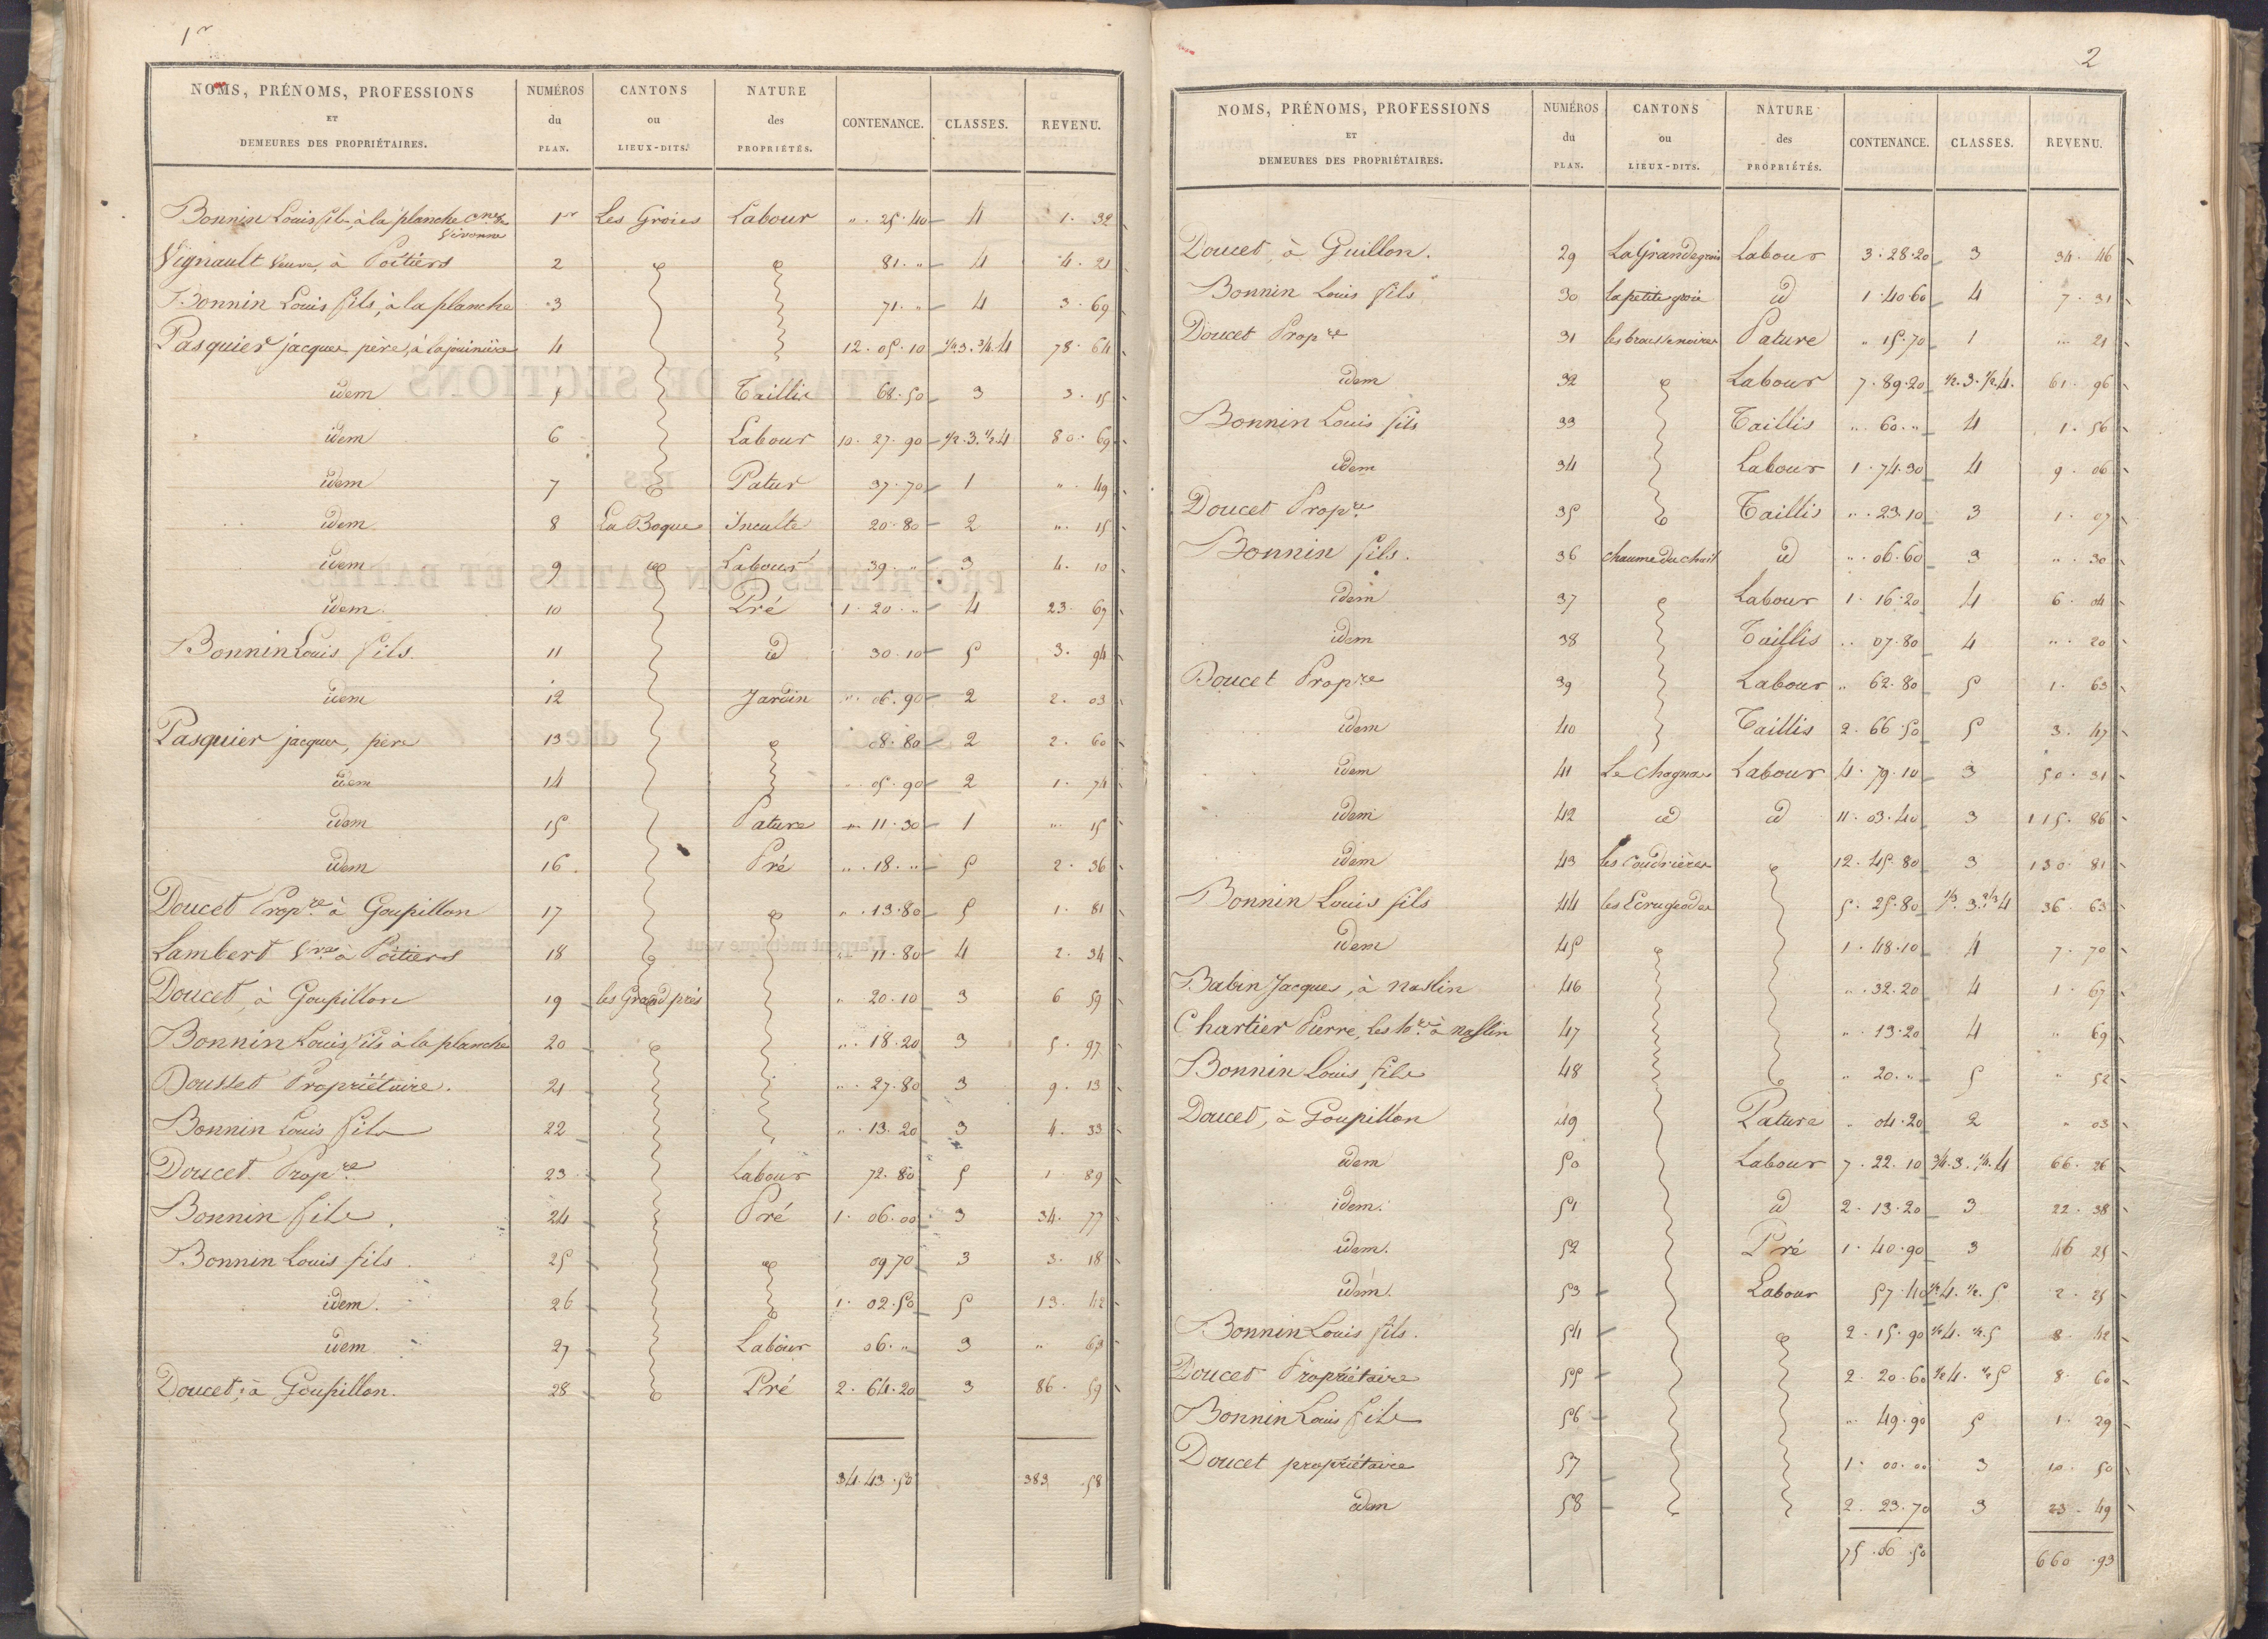 1er
NOMS, PRÉNOMS, PROFESSIONS ET DEMEURES DES PROPRIÉTAIRES. NUMÉROS du PLAN. CANTONS ou LIEUX-DITS. NATURE des PROPRIÉTÉS. CONTENANCE. CLASSES. REVENU.
Bonnin Louis fils, à la planche Cne de Vivonne 1er Les Groies Labour " . 25 . 40 4 1 . 32
Vignault Veuve, à Poitiers 2 81 . " 4 4 . 21
Bonnin Louis fils, à la planche 3 71 . " 4 3 . 69
Pasquier jacques père, à la jouinière 4 12 . 05 . 10 1/4 3. 3/4. 4 78 . 64
idem 5 Taillis 68 . 50 3 3 . 15
idem 6 Labour 10 . 27 . 90 1/2 . 3. 1/2 4 80 . 69
idem 7 Patur 37 . 70 1 " . 49
idem 8 La Boque Inculte 20 . 80 2 " . 15
idem 9 Labour 39 . " 3 4 . 10
idem 10 Pré 1 . 20 . " 4 23 . 69
Bonnin Louis fils. 11 id 30 . 10 5 3 . 94
idem 12 Jardin " . 06 . 90 2 2 . 03
Pasquier jacques, père 13 08 . 80 2 2 . 60
idem 14 05 . 90 2 1 . 74
idem 15 Pature " 11 . 30 1 " . 15
idem 16 Pré " . 18 . " 5 2 . 36
Doucet Propre à Goupillon 17 " . 13 . 80 5 1 . 81
Lambert Vve à Poitiers 18 " 11 . 80 4 2 . 34
Doucet, à Goupillon 19 les Grand prés " 20 . 10 3 6 59
Bonnin Louis fils à la planche 20 " . 18 . 20 3 5 . 97
Dousset Propriétaire. 21 " . 27 . 80 3 9 . 13
Bonnin Louis fils 22 " . 13 . 20 3 4 . 33
Doucet Propre 23 Labour 72 . 80 5 1 89
Bonnin fils 24 Pré 1 . 06 . 00 3 34 . 77
Bonnin Louis fils. 25 09 70 3 3 . 18
idem. 26 1 . 02 . 50 5 13 . 42
idem 27 Labour 06 . " 3 " 63
Doucet, à Goupillon. 28 Pré 2 . 64 . 20 3 86 . 59
34 . 43 . 50 383 . 58
2
NOMS, PRÉNOMS, PROFESSIONS ET DEMEURES DES PROPRIÉTAIRES. NUMÉROS du PLAN. CANTONS ou LIEUX-DITS. NATURE des PROPRIÉTÉS. CONTENANCE. CLASSES. REVENU.
Doucet, à Guillon. 29 La Grande groie Labour 3 . 28 . 20 3 34 . 46
Bonnin Louis fils 30 la petite groie id 1 . 40 . 60 4 7 . 31
Doucet Propre 31 Pature " 15 . 70 1 " 21
idem 32 Labour 7 . 89 . 20 1/2 . 3 . 1/2 4. 61 . 96
Bonnin Louis fils 33 Taillis " . 60 . " 4 1 . 56
idem 34 Labour 1 . 74 . 30 4 9 . 06
Doucet Propre 35 Taillis " . 23 . 10 3 1 . 07
Bonnin fils. 36 chaume du chail id " . 06 . 60 3 " . 30
idem 37 Labour 1 . 16 . 20 4 6 . 04
idem 38 Taillis " 07 . 80 4 " . 20
Doucet Propre 39 Labour " 62 . 80 5 1 . 63
idem 40 Taillis 2 . 66 . 50 5 3 . 47
idem 41 Labour 4 . 79 . 10 3 50 . 31
idem 42 id id 11 . 03 . 40 3 115 . 86
idem 43 les Coudrières 12 . 45 . 80 3 130 . 81
Bonnin Louis fils 44 5 . 25 . 80 1/3 . 3. 2/3 4 36 . 63
idem 45 1 . 48 . 10 4 7 . 70
Babin Jacques, à naslin 46 " . 32 . 20 4 1 . 67
Chartier Pierre, les hers à naslin 47 " 13 . 20 4 " 69
Bonnin Louis, fils 48 " 20 . " 5 " 52
Doucet, à Goupillon 49 Pature " 04 . 20 2 " 03
idem 50 Labour 7 . 22 . 10 3/4 . 3 . 1/4 . 4 66 . 26
idem. 51 id 2 . 13 . 20 3 22 . 38
idem. 52 Pré 1 . 40 . 90 3 46 25
idem. 53 Labour 57 . 40 1/2 4. 1/2 . 5 2 . 25
Bonnin Louis fils. 54 2 . 15 . 90 1/2 4 . 1/2 . 5 8 . 42
Doucet Propriétaire 55 2 . 20 . 60 1/2 4 . 1/2 5 8 . 60
Bonnin Louis fils 56 " 49 . 90 5 1 . 29
Doucet propriétaire 57 1 . 00 . 00 3 10 . 50
idem 58 2 . 23 . 70 3 23 . 49
75 . 06 . 50 660 . 93